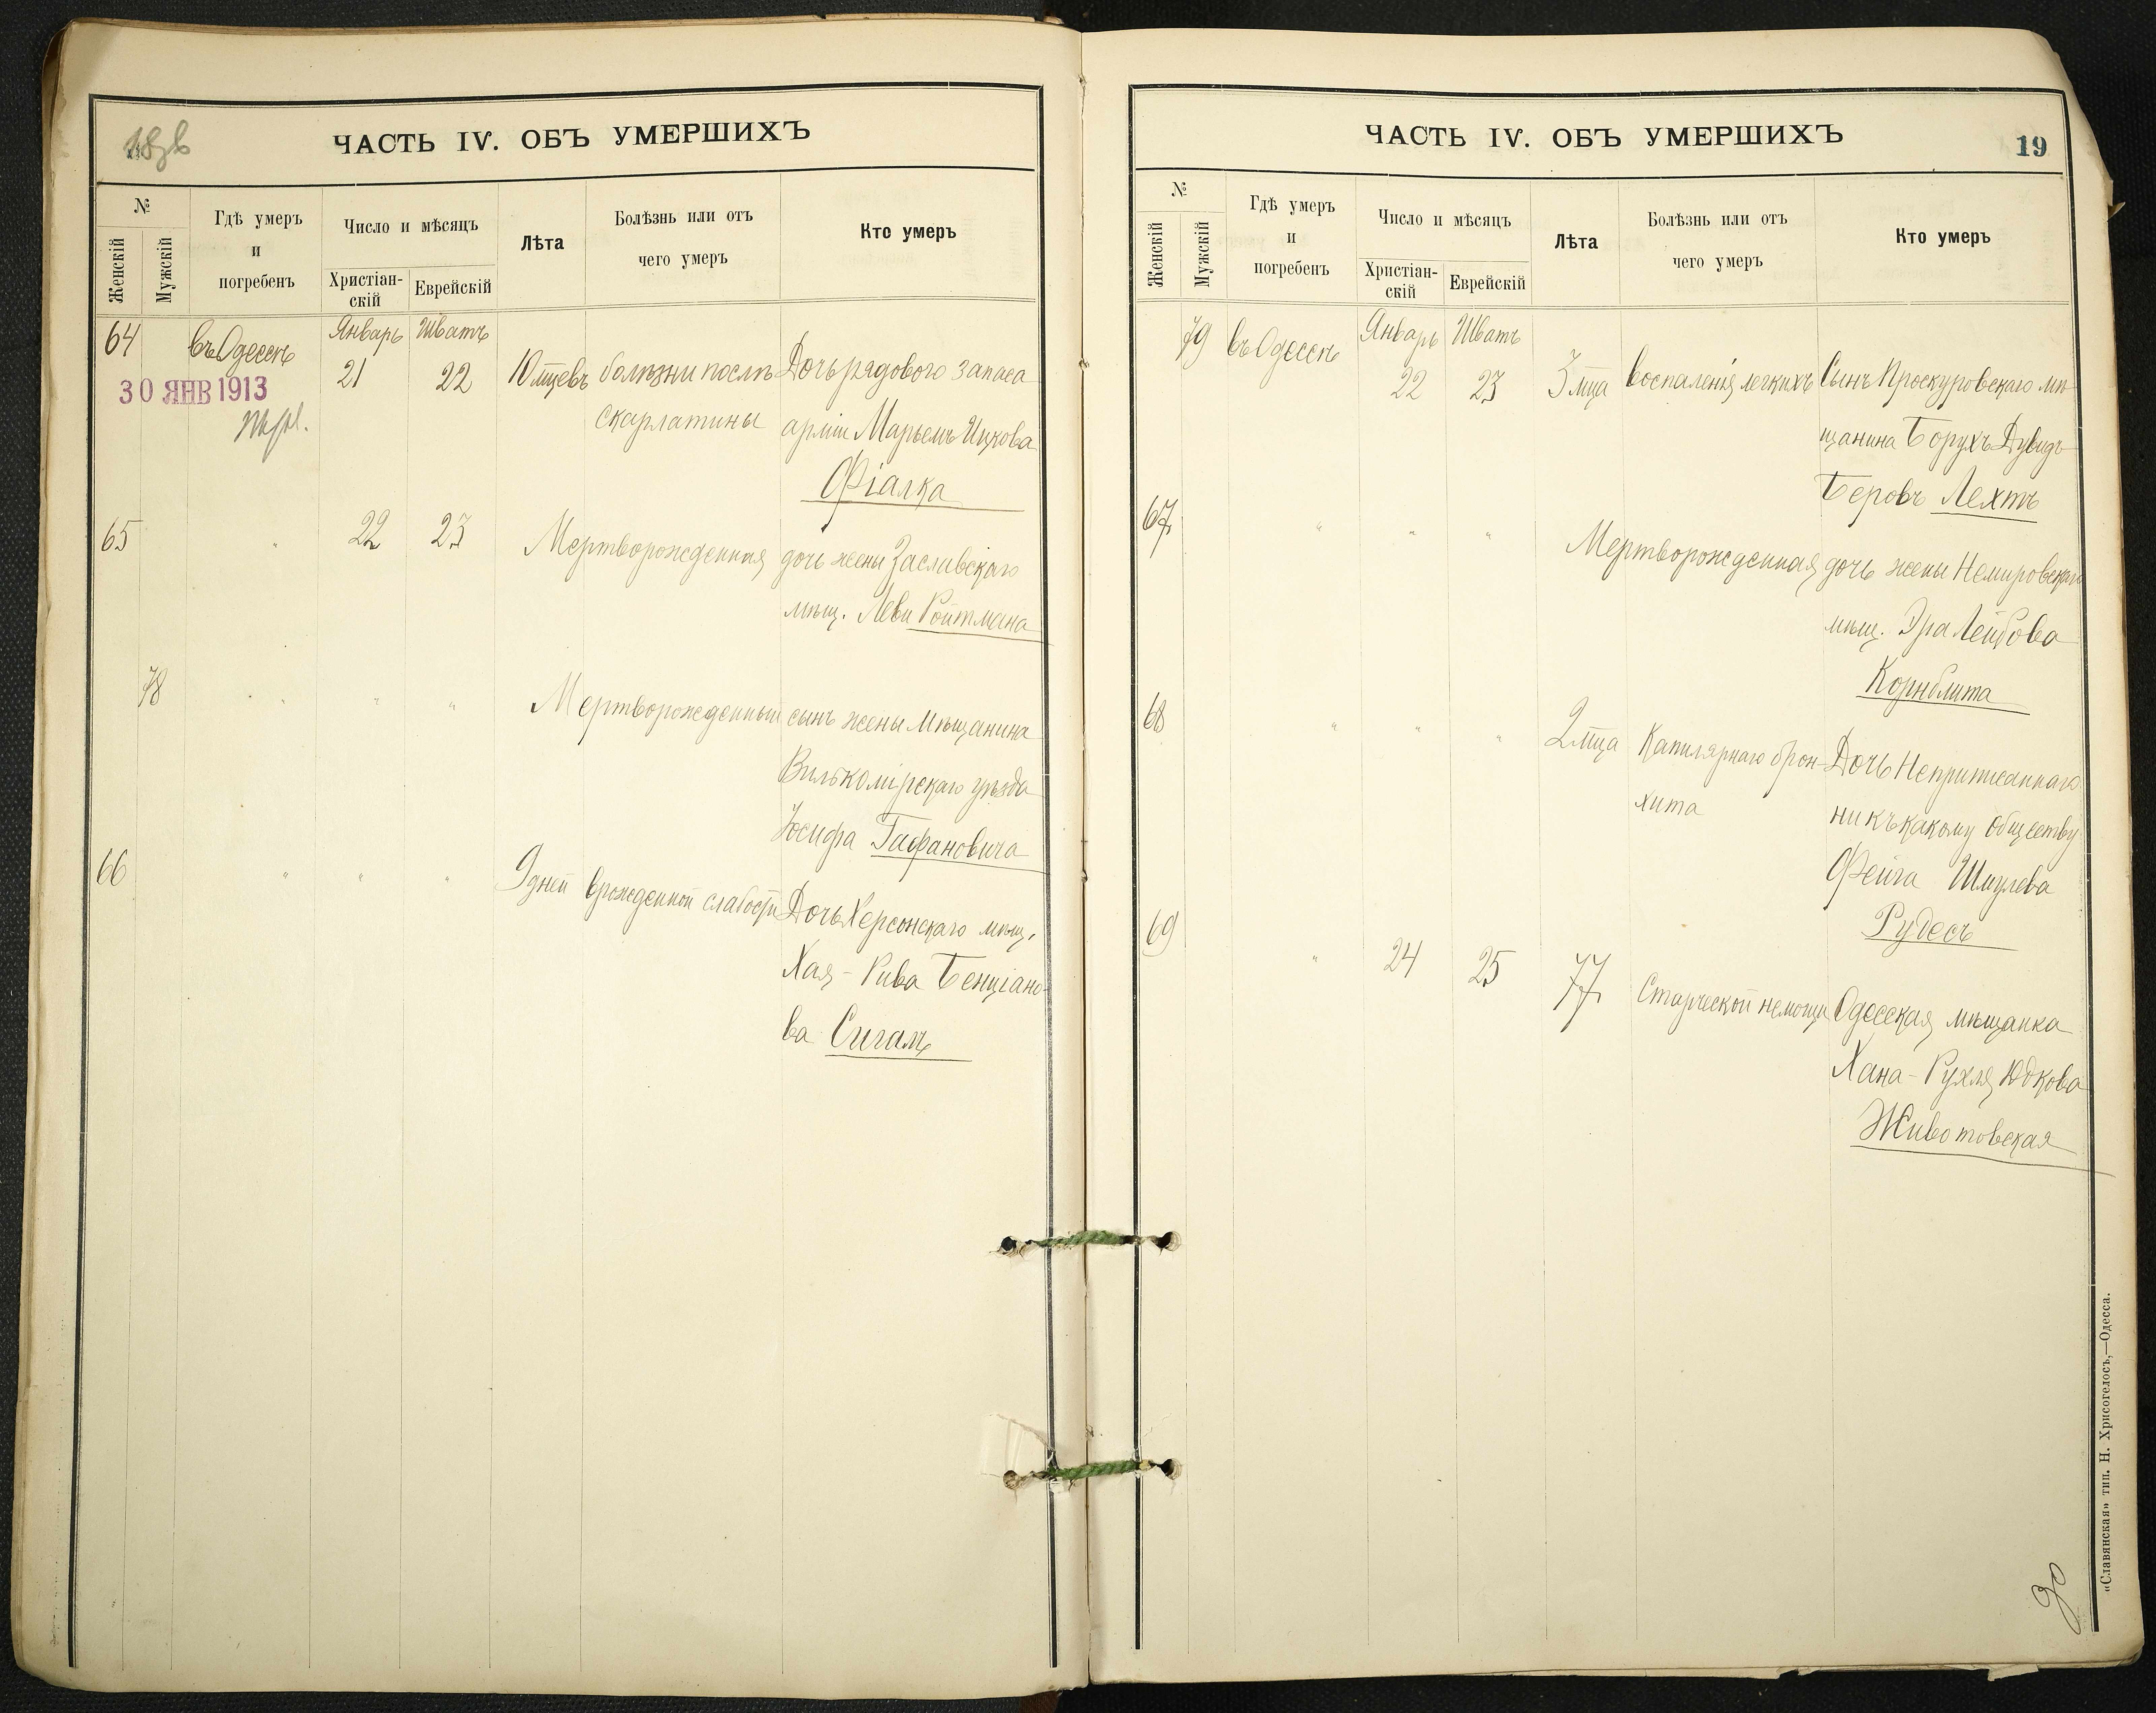 ЧАСТЬ IV. ОБЪ УМЕРШИХЪ
№
Женскій
Мужскій
Гдѣ умеръ
и
погребенъ
Число и мѣсяцъ
Христіан-
скій
Еврейскій
Лѣта
Болѣзнь или отъ
чего умеръ
Кто умеръ
64 въ Одессѣ Январь Шватъ
21 22 10 мцевъ болѣзни послѣ Дочь рядового запаса
30 ЯНВ 1913
скарлатины арміи Марьемъ Ицкова
Фіалка
65 " 22 23 Мертворожденная дочь жены Заславскаго
мѣщ. Леви Ройтмана
78 " " " Мертворожденный сынъ жены Мѣщанина
Вилькомірскаго уѣзда
Іосифа Гифановича
66 " " " 9 дней врожденной слабости Дочь Херсонскаго мѣщ.
Хая-Рива Бенціано-
ва Сигалъ
ЧАСТЬ IV. ОБЪ УМЕРШИХЪ
19
№
Женскій
Мужскій
Гдѣ умеръ
и
погребенъ
Число и мѣсяцъ
Христіан-
скій
Еврейскій
Лѣта
Болѣзнь или отъ
чего умеръ
Кто умеръ
79 въ Одессѣ Январь Шватъ
22 23 3 мца воспаленія легкихъ Сынъ Проскуровскаго мѣ-
щанина Борухъ Дувидъ
Беровъ Лехтъ
67 " " " Мертворожденная дочь жены Немировскаго
мѣщ. Эра Лейбова
Корнблита
68 " " " 2 мца Капилярнаго брон- Дочь Неприписаннаго
хита ни къ какому обществу
Фейга Шмулева
Рудесъ
69 " 24 25 77 Старческой немощи Одесская мѣщанка
Хана-Рухля Юдкова
Животовская
«Славянская» тип. Н. Хрисогелосъ,—Одесса.